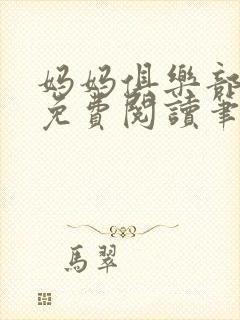 媽媽俱樂部
免費閱讀筆
馬翠